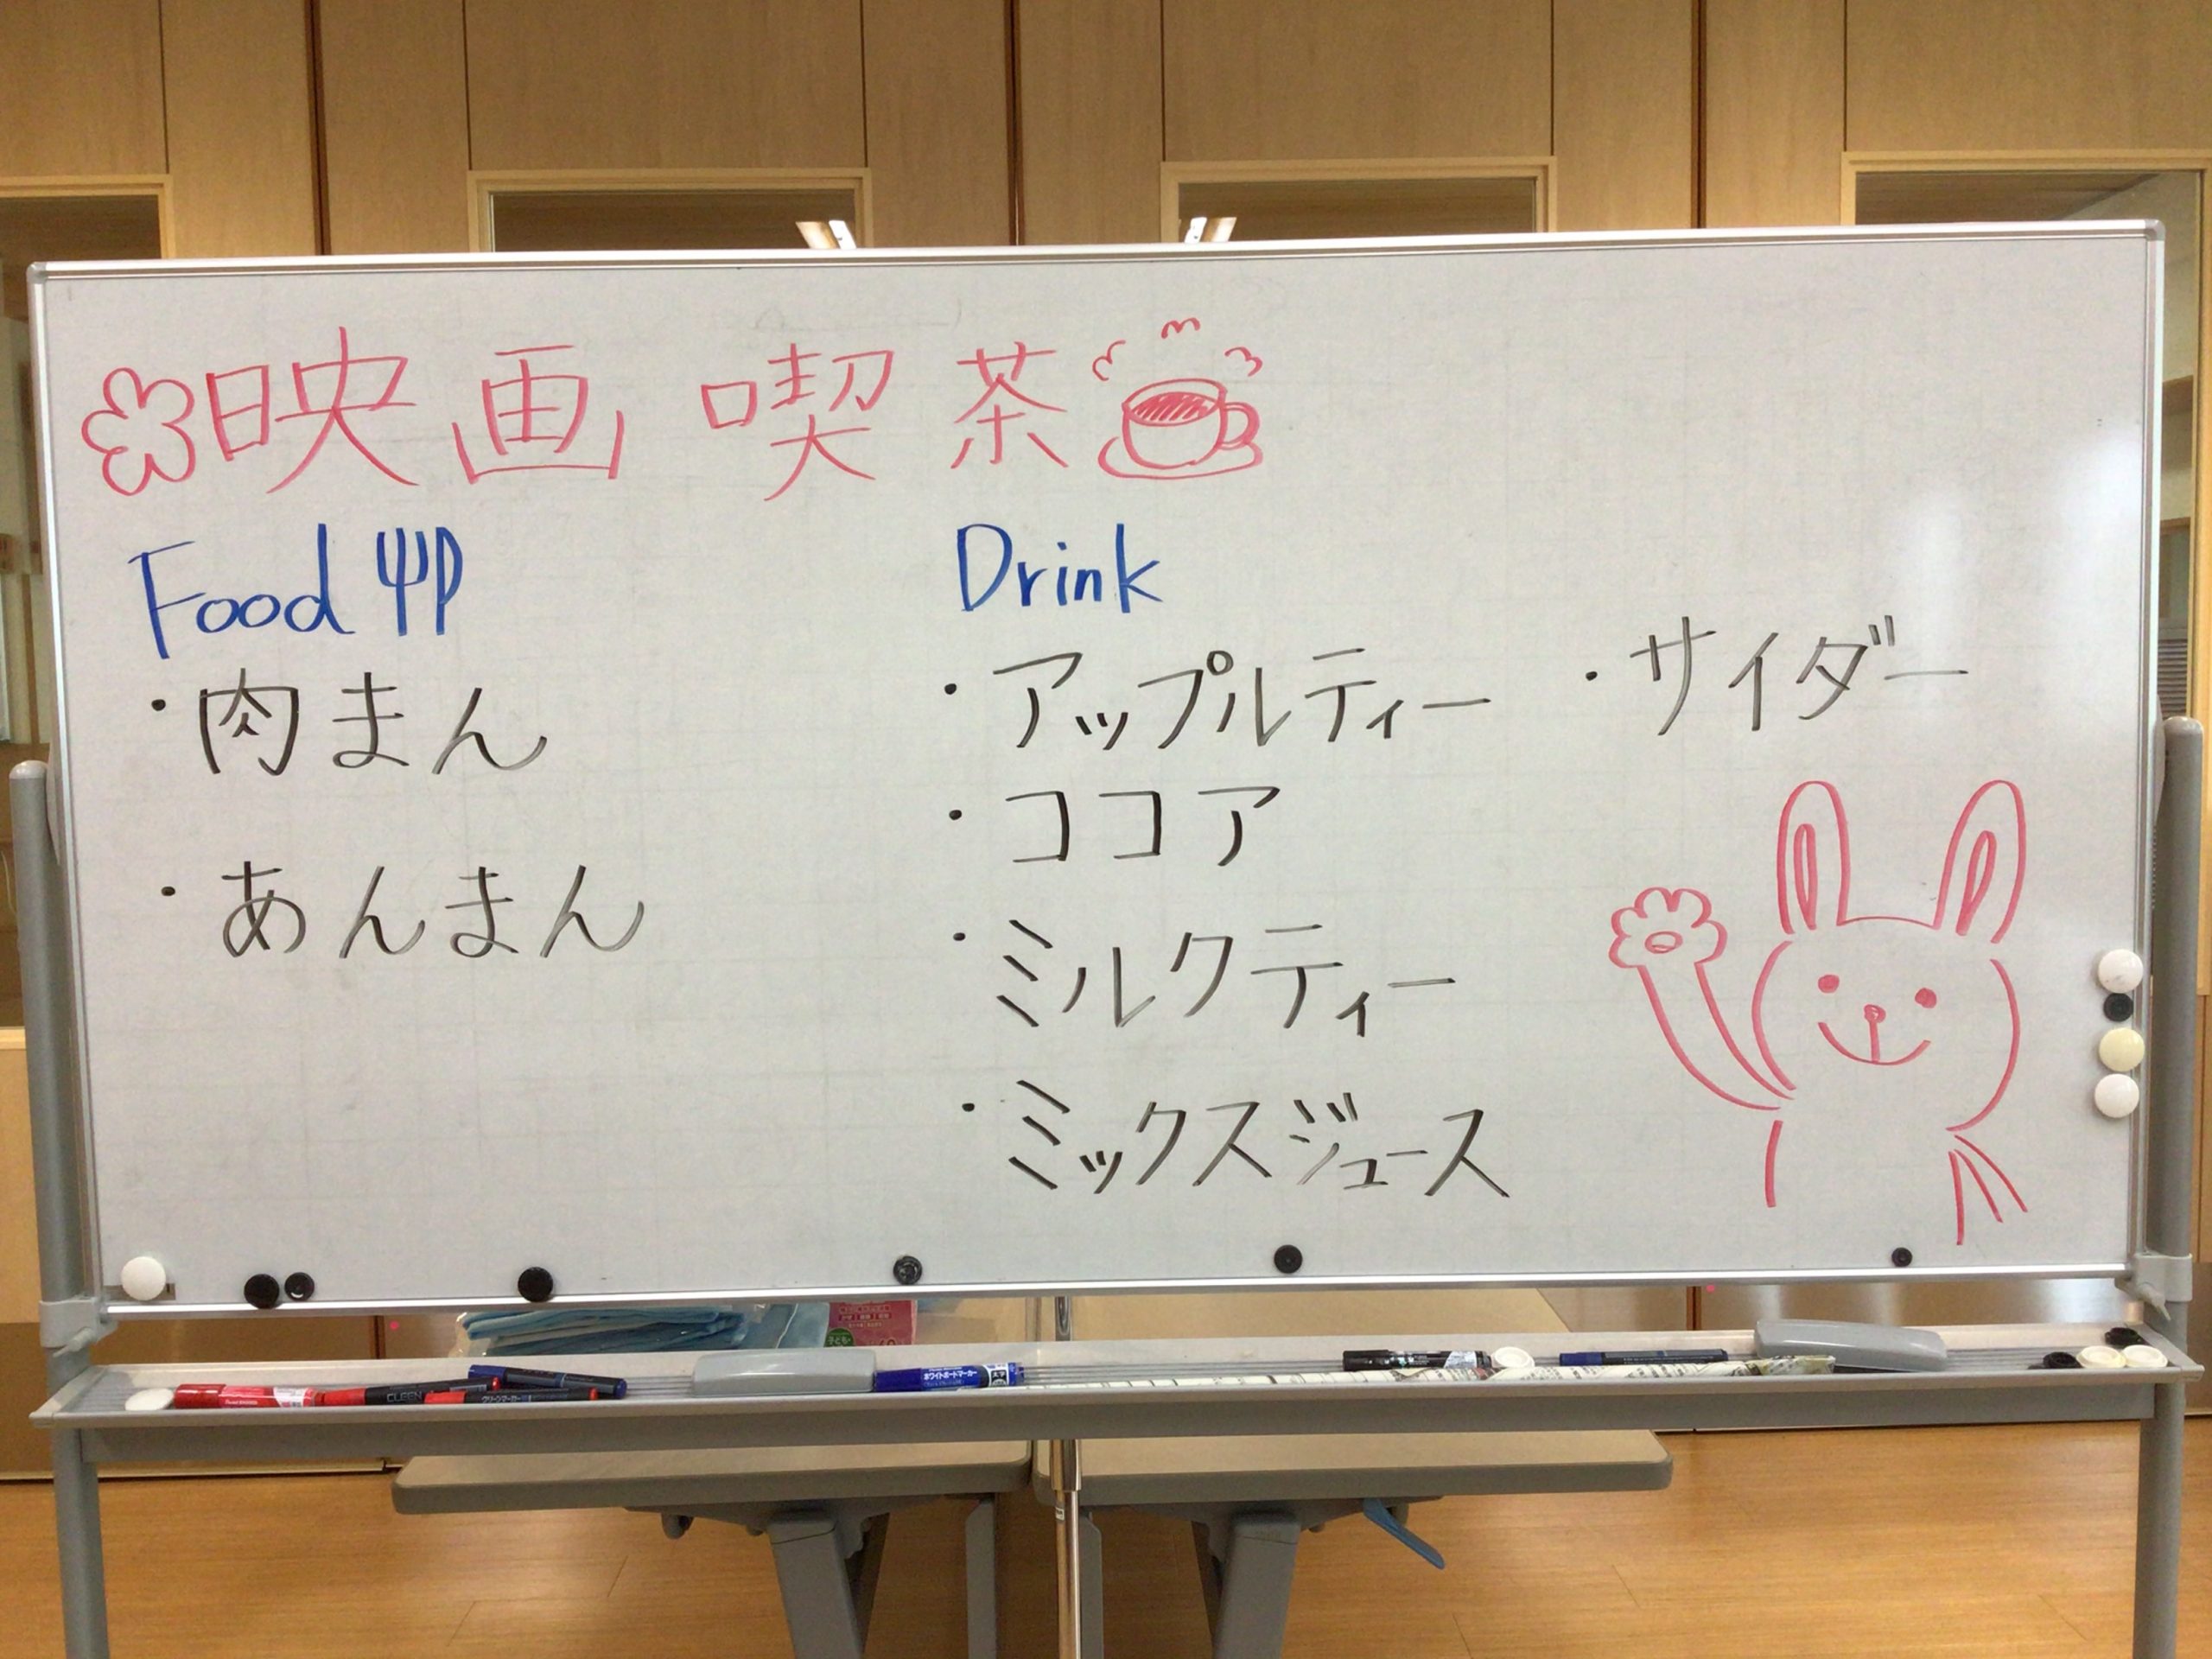 映画喫茶
Food
・肉まん
・あんまん
Drink
・アップルティー
・ココア
・ミルクティー
・ミックスジュース
・サイダー
ホワイトボードマーカー